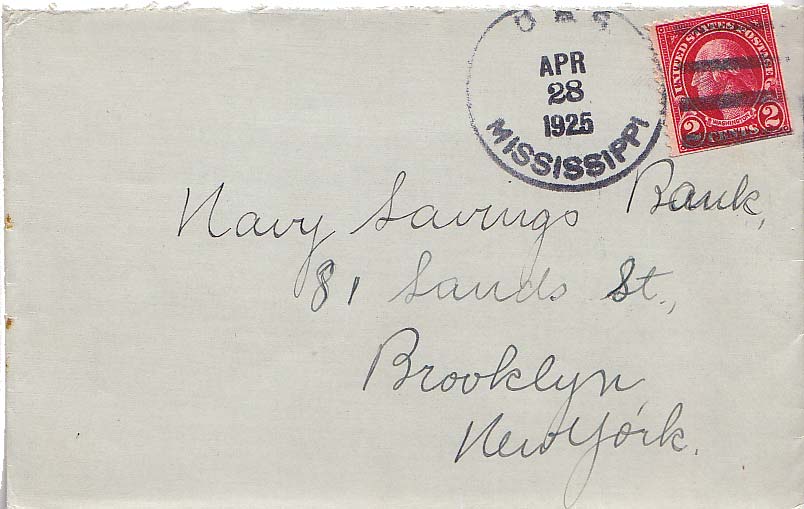 APR
28
1925
MISSISSIPPI
UNITED STATES POSTAGE
WASHINGTON
2 CENTS 2
Navy Savings Bank,
81 Sands St.,
Brooklyn
New York.